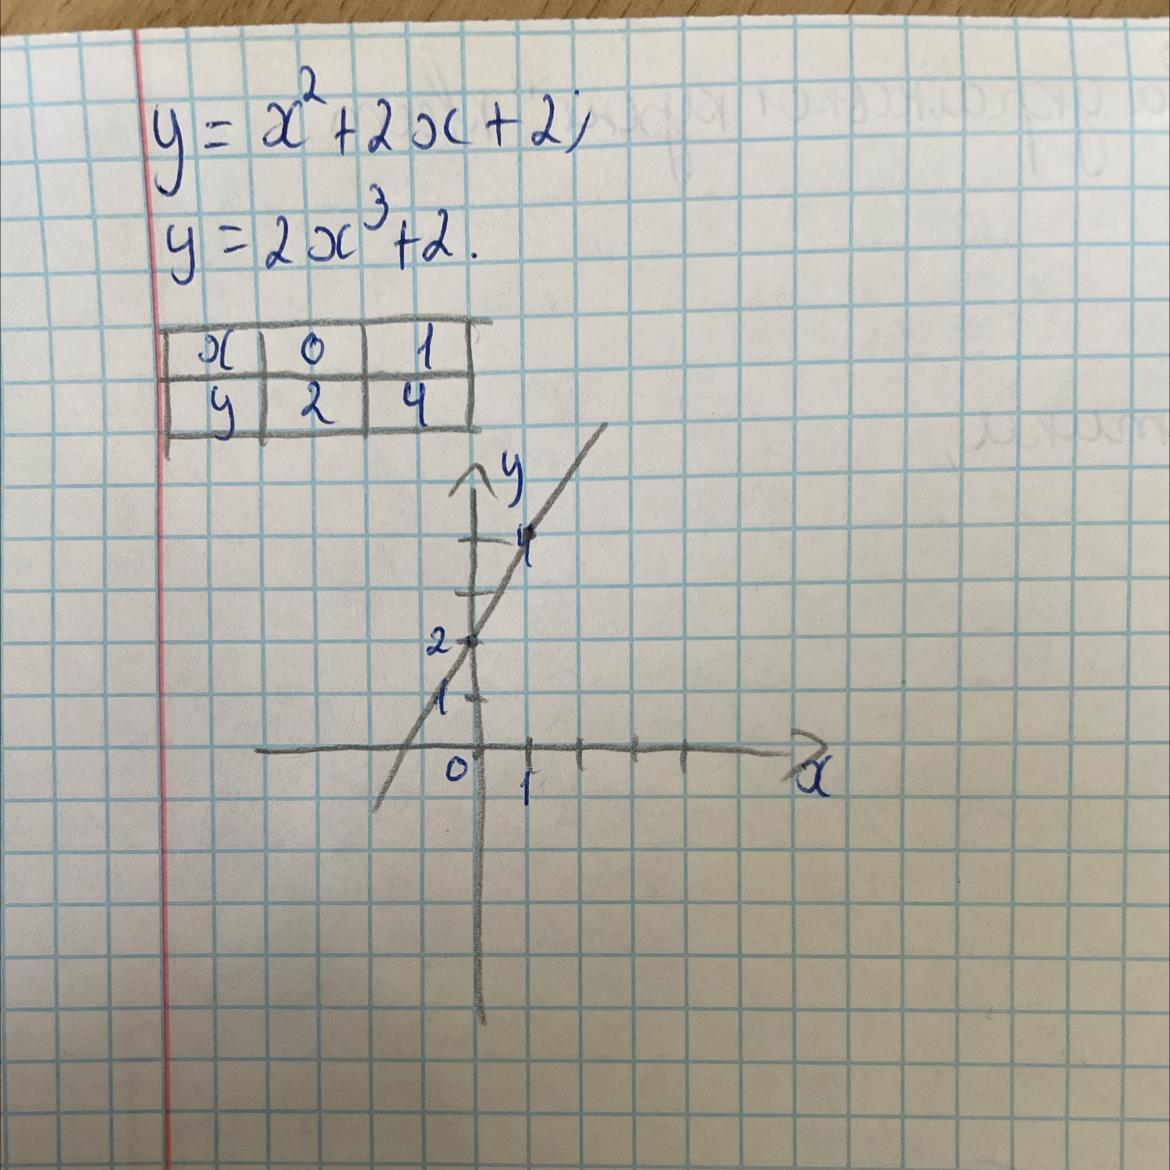 y = x² + 2x + 2;
y = 2x³ + 2.
x 0 1
y 2 4
y
4
2
1
0
1
x